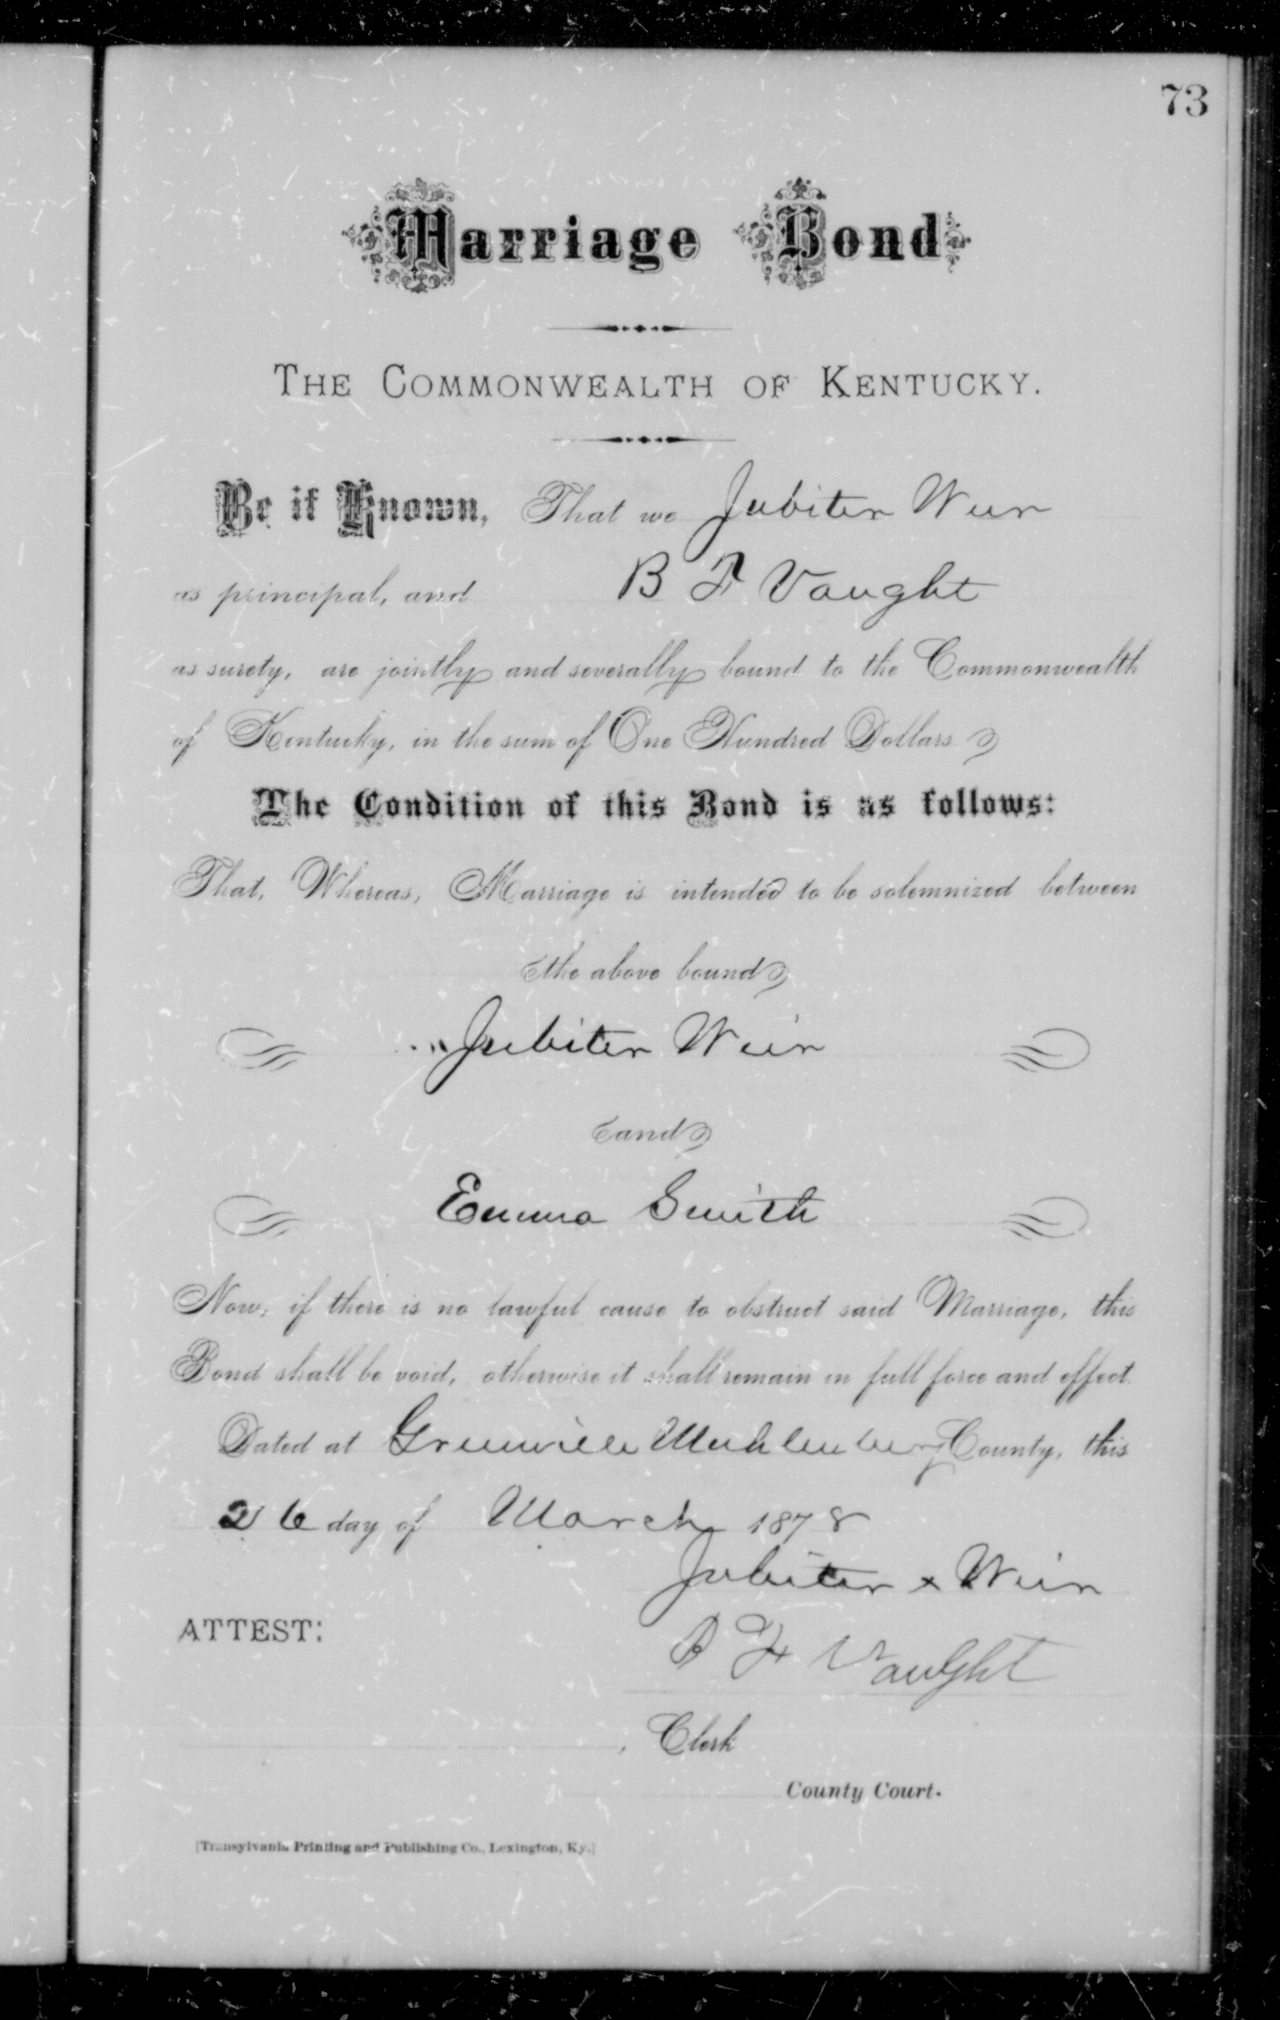 73
Marriage Bond
THE COMMONWEALTH OF KENTUCKY.
Be it Known, That we Jubiter Weir
as principal, and B F Vaught
as surety, are jointly and severally bound to the Commonwealth
of Kentucky, in the sum of One Hundred Dollars
The Condition of this Bond is as follows:
That, Whereas, Marriage is intended to be solemnized between
the above bound
Jubiter Weir
and
Emma Smith
Now, if there is no lawful cause to obstruct said Marriage, this
Bond shall be void, otherwise it shall remain in full force and effect.
Dated at Greenville Muhlenberg County, this
26 day of March 1878
Jubiter x Weir
ATTEST:
B F Vaught
, Clerk
County Court.
[Transylvania Printing and Publishing Co., Lexington, Ky.]